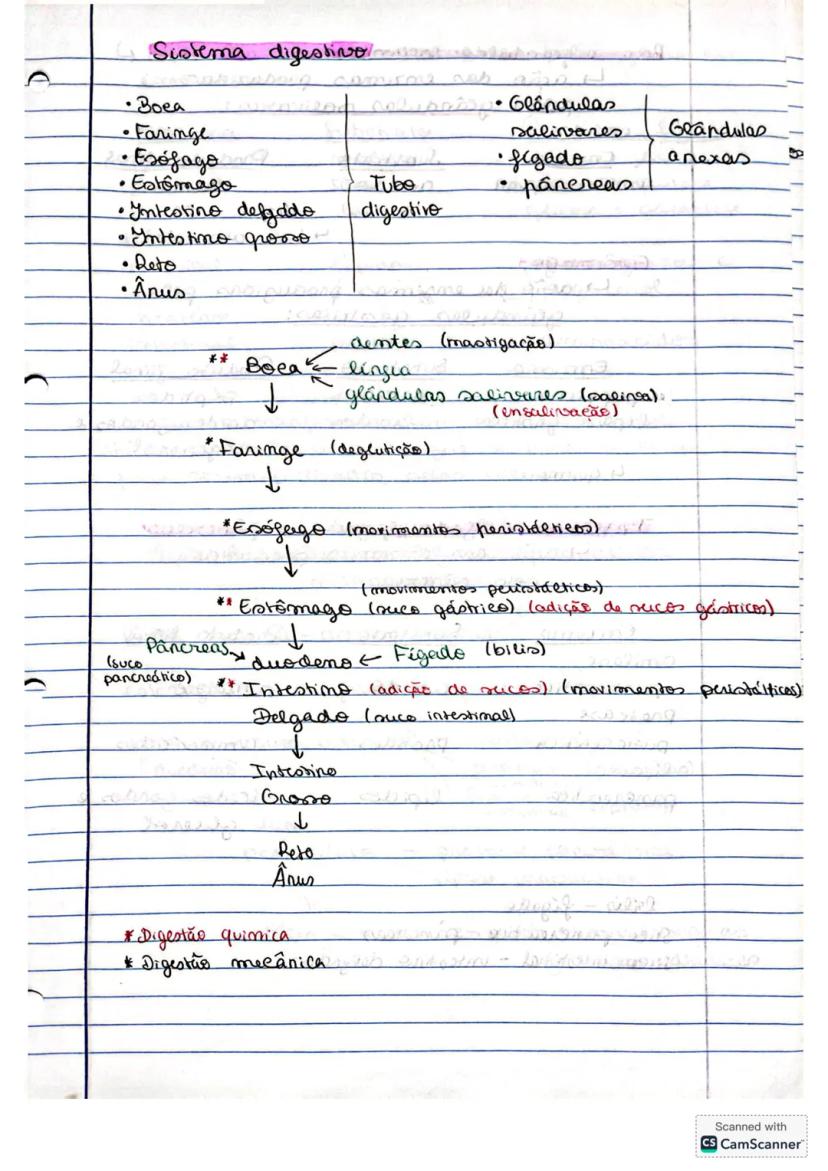 Sistema digestivo
• Boca
• Faringe
• Esófago
• Estômago
• Intestino delgado
• Intestino grosso
• Reto
• Ânus
Tubo
digestivo
• Glândulas
salivares
• fígado
• pâncreas
Glândulas
anexas
dentes (mastigação)
** Boca
língua
glândulas salivares (saliva)
(ensalivação)
* Faringe (deglutição)
* Esófago (movimentos peristálticos)
(movimentos peristálticos)
** Estômago (suco gástrico) (adição de sucos gástricos)
Pâncreas → duodeno ← Fígado (bílis)
(suco
pancreático)
** Intestino (adição de sucos) (movimentos peristálticos)
Delgado (suco intestinal)
Intestino
Grosso
Reto
Ânus
* Digestão química
* Digestão mecânica
Scanned with
CS CamScanner